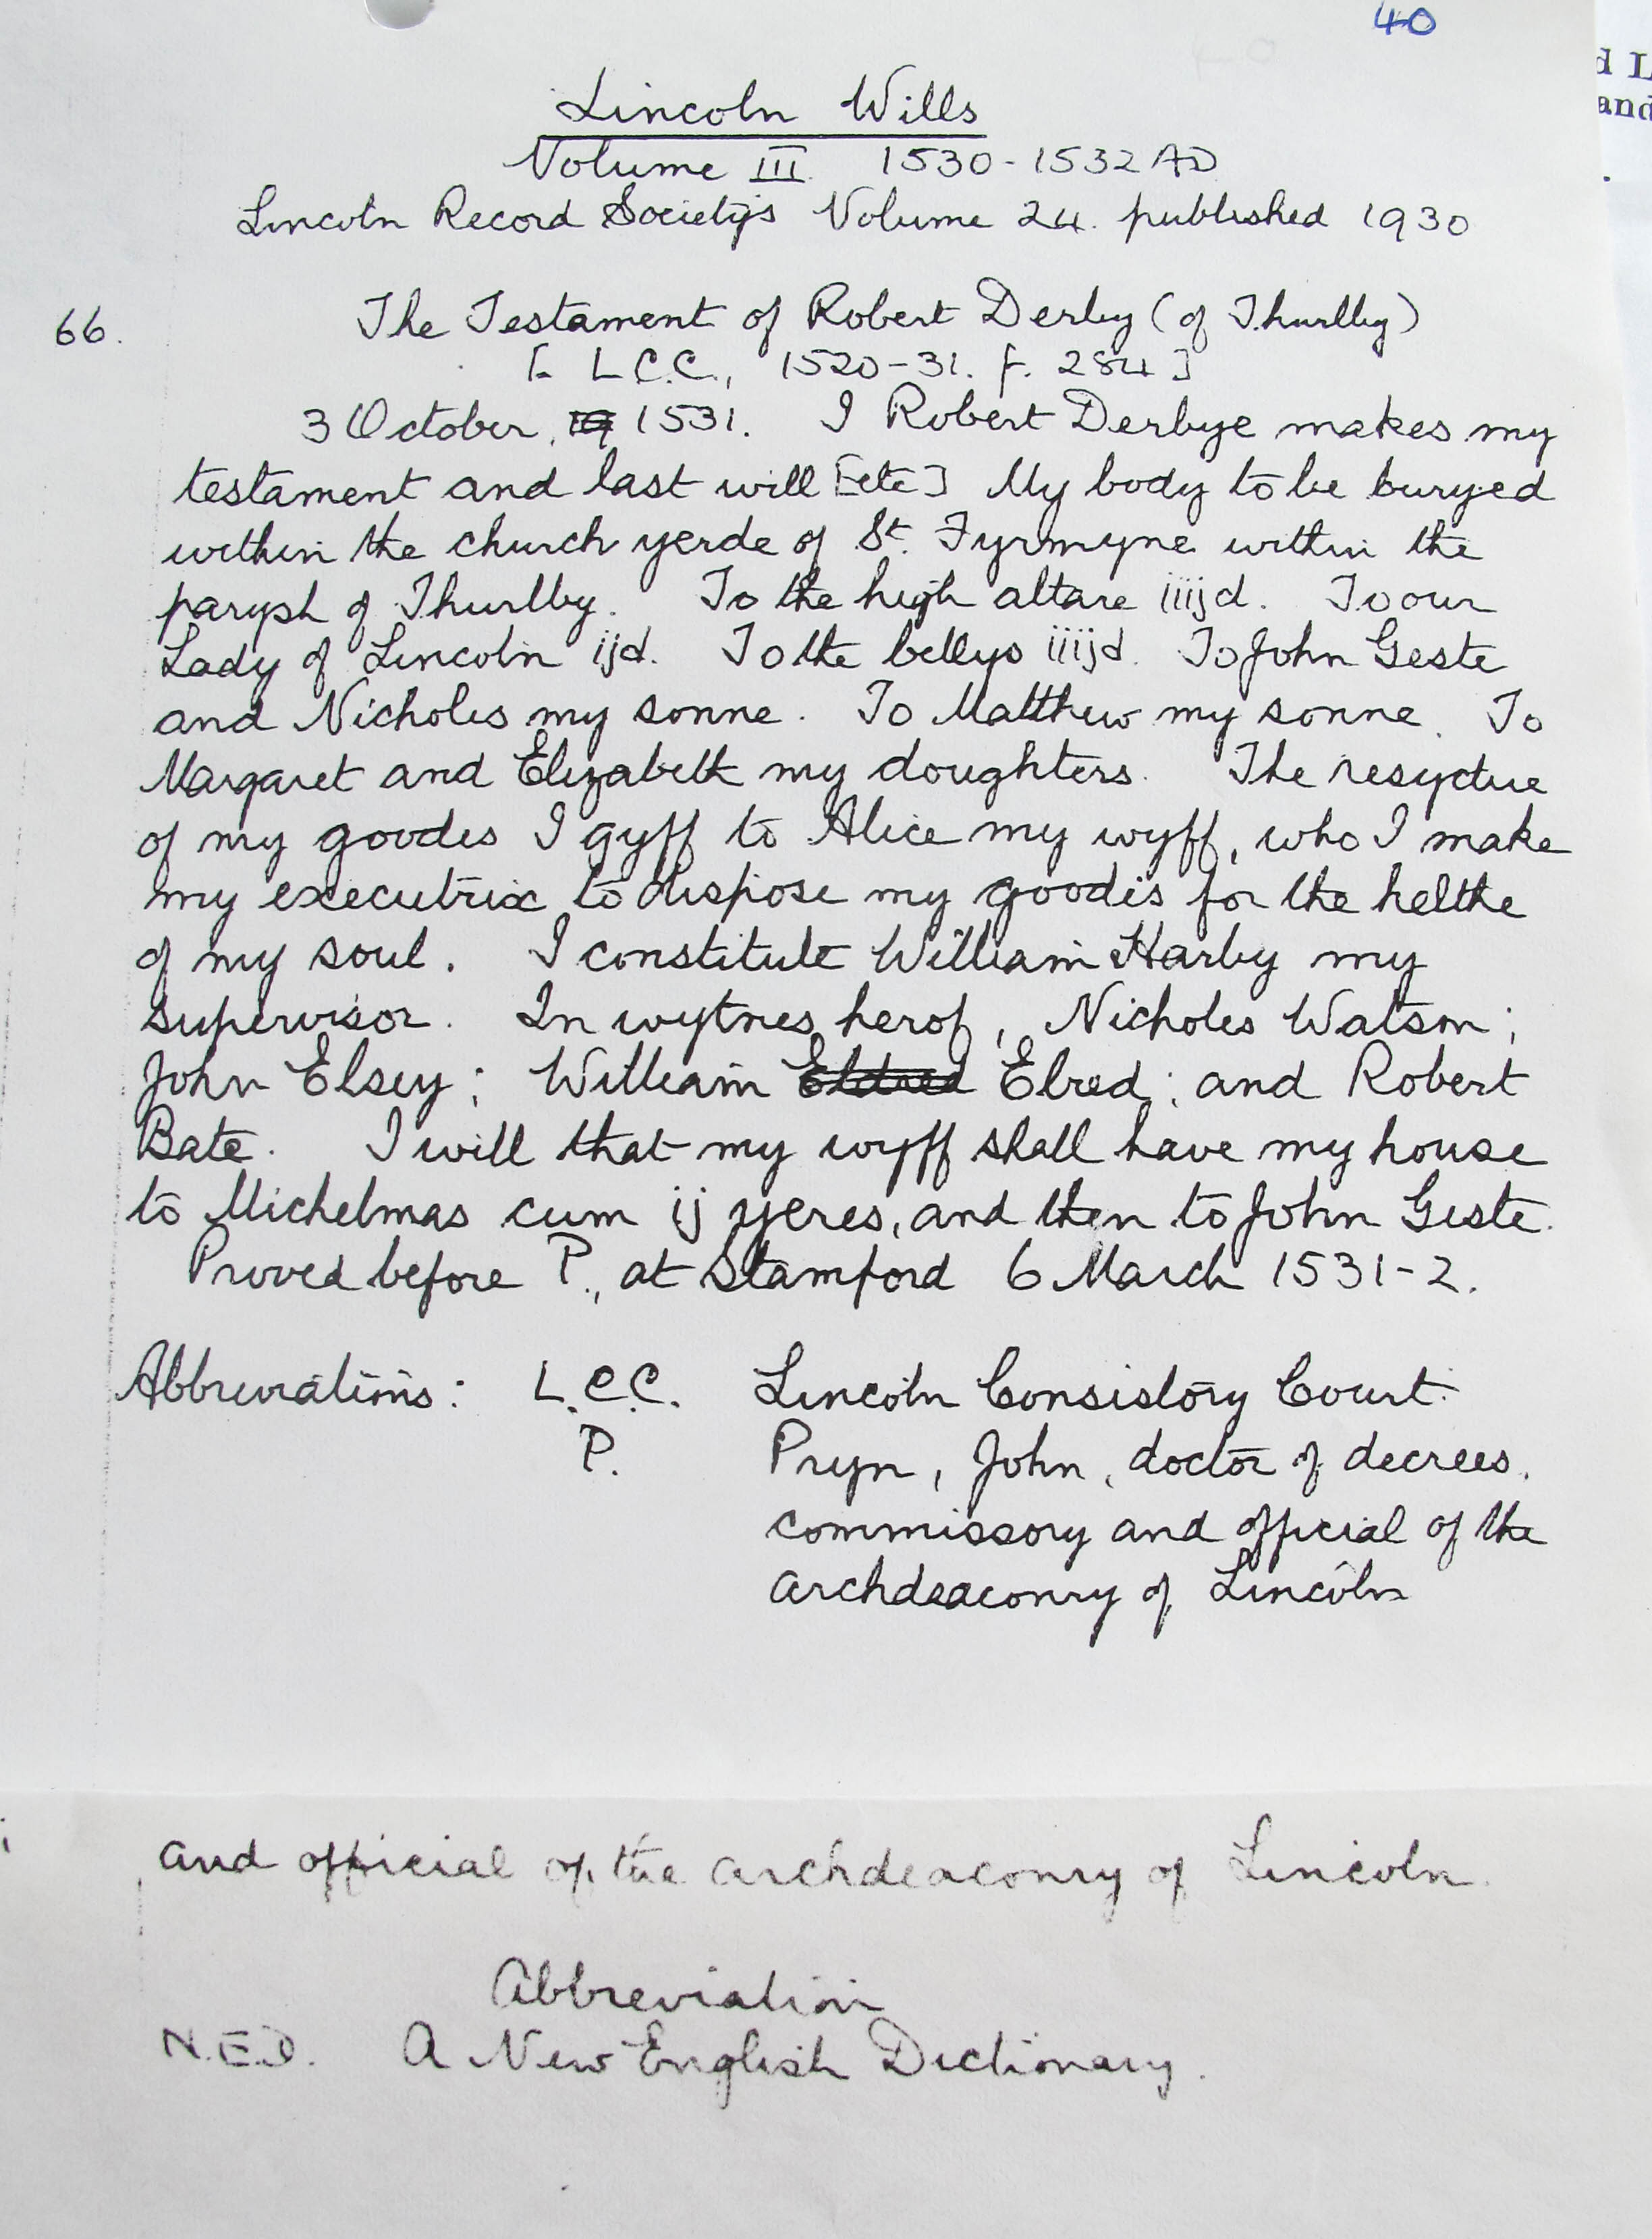 40
d L
and
Lincoln Wills
Volume III 1530-1532 AD
Lincoln Record Society's Volume 24. published 1930
66. The Testament of Robert Derby (of Thurlby)
[ L.C.C., 1520-31. f. 284 ]
3 October, 1531. I Robert Derbye makes my
testament and last will [etc] My body to be buryed
within the church yerde of St. Fyrmyne within the
parysh of Thurlby. To the high altare iiijd. To our
Lady of Lincoln ijd. To the bellys iiijd. To John Geste
and Nicholes my sonne. To Matthew my sonne. To
Margaret and Elizabeth my doughters. The resydue
of my goodes I gyff to Alice my wyff, who I make
my executrix to dispose my goodis for the helthe
of my soul. I constitute William Harby my
supervisor. In wytnes herof, Nicholes Watson;
John Elsey; William Eldred Elred; and Robert
Bate. I will that my wyff shall have my house
to Michelmas cum ij yeres, and then to John Geste.
Proved before P., at Stamford 6 March 1531-2.
Abbreviations: L.C.C. Lincoln Consistory Court.
P. Pryn, John, doctor of decrees,
commissory and official of the
archdeaconry of Lincoln
and official of the archdeaconry of Lincoln.
Abbreviation
N.E.D. A New English Dictionary.